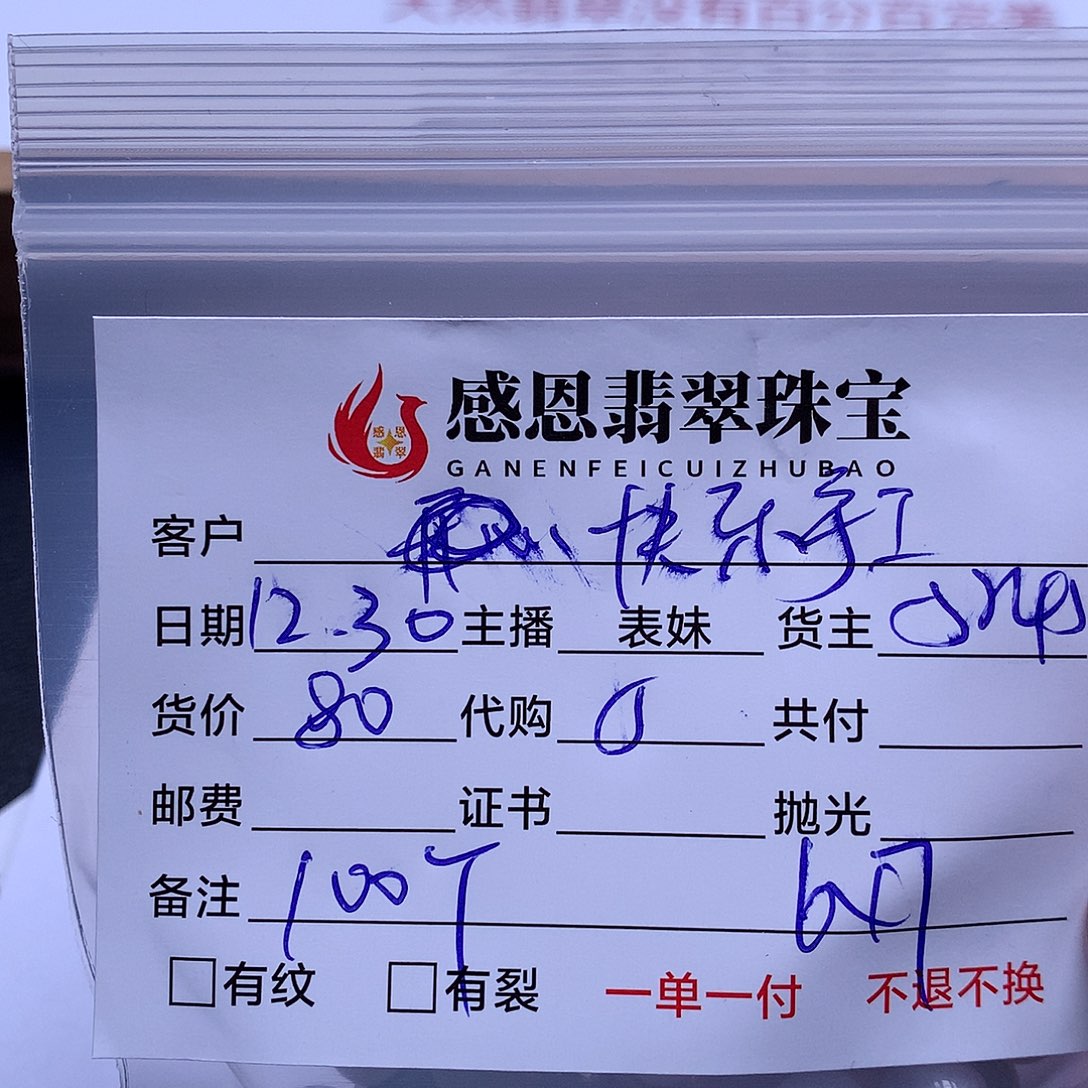 天然翡翠没有百分百完美
感恩翡翠珠宝
GANENFEICUIZHUBAO
客户 快乐手工
日期 12.30 主播 表妹 货主
货价 80 代购 0 共付
邮费 证书 抛光
备注 100个 6*7
有纹 有裂 一单一付 不退不换